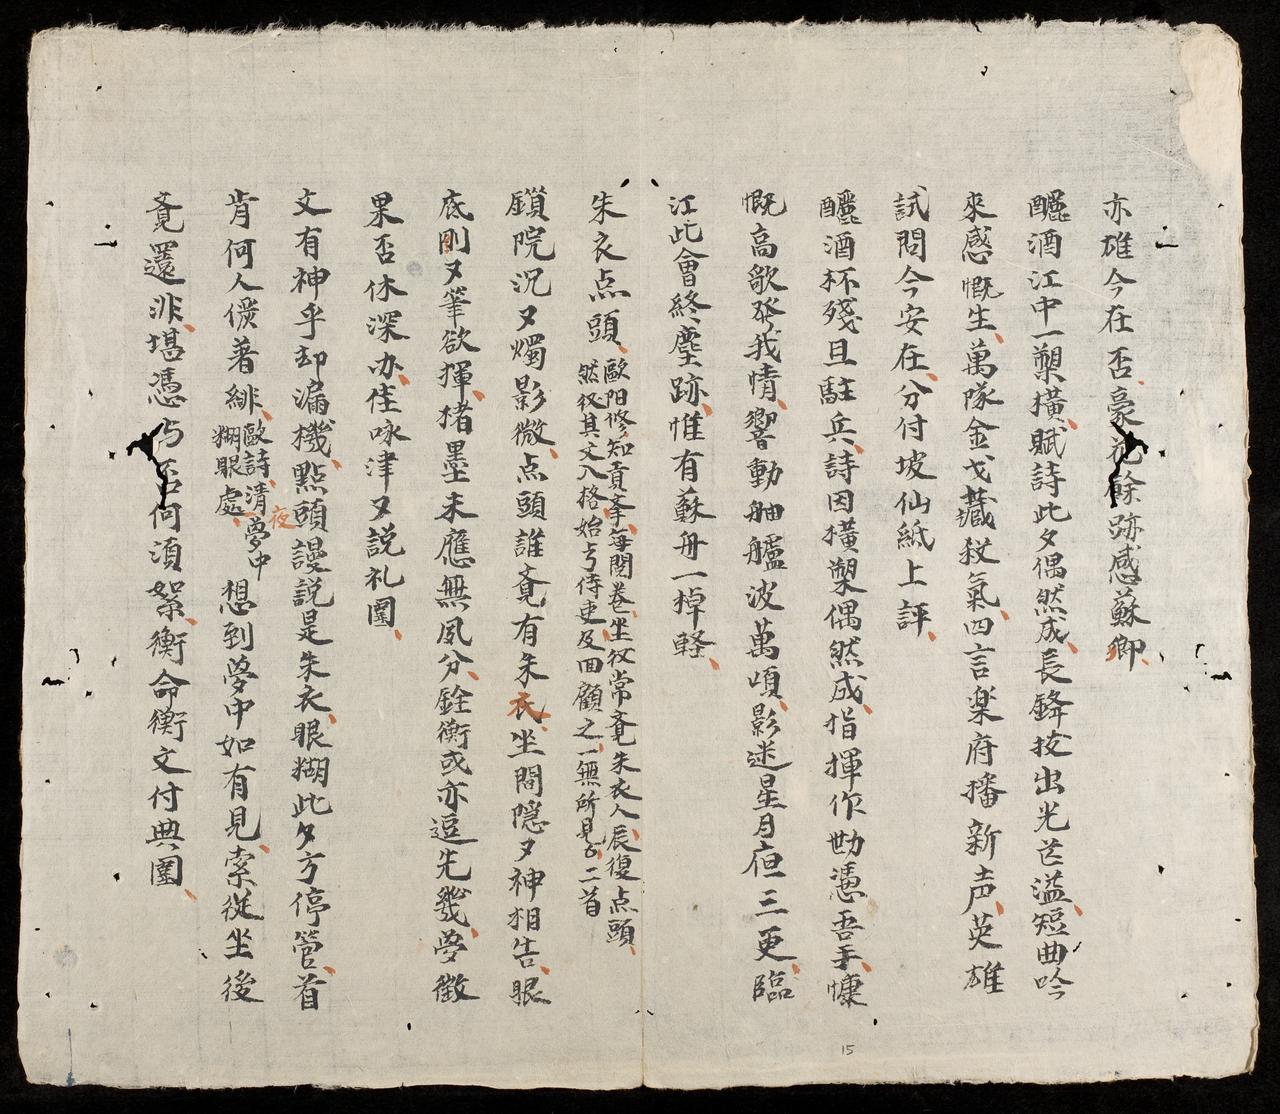 亦雄今在否豪花餘跡感蘇卿
釃酒江中一槊横賦詩此夕偶然成長鋒拔出光芒溢短曲吟
來感慨生萬隊金戈藏殺氣四言楽府播新声英雄
試問今安在分付坡仙紙上評
釃酒杯殘且駐兵詩因横槊偶然成指揮作勢憑吾手慷
慨高歌発我情響動舳艫波萬頃影迷星月夜三更臨
江此會終塵跡惟有蘇舟一掉軽
朱衣点頭
歐阳修知貢挙每閱卷坐後常覔朱衣人辰復点頭
然後其文入格始亐侍吏及回顧之一無所見云二首
鎖院沉〻燭影微点頭誰覔有朱衣坐間隠〻神相告眼
底剛〻筆欲揮楮墨未應無夙分銓衡或亦逗先幾夢徵
果否休深办佳咏津〻説礼圍
文有神乎却漏機點頭謾説是朱衣眼糊此夕方停管首
肯何人儼著緋
歐詩清夜夢中
糊眼處
想到夢中如有見索從坐後
覔還非堪憑与否何須絮衡命衡文付典圍
15